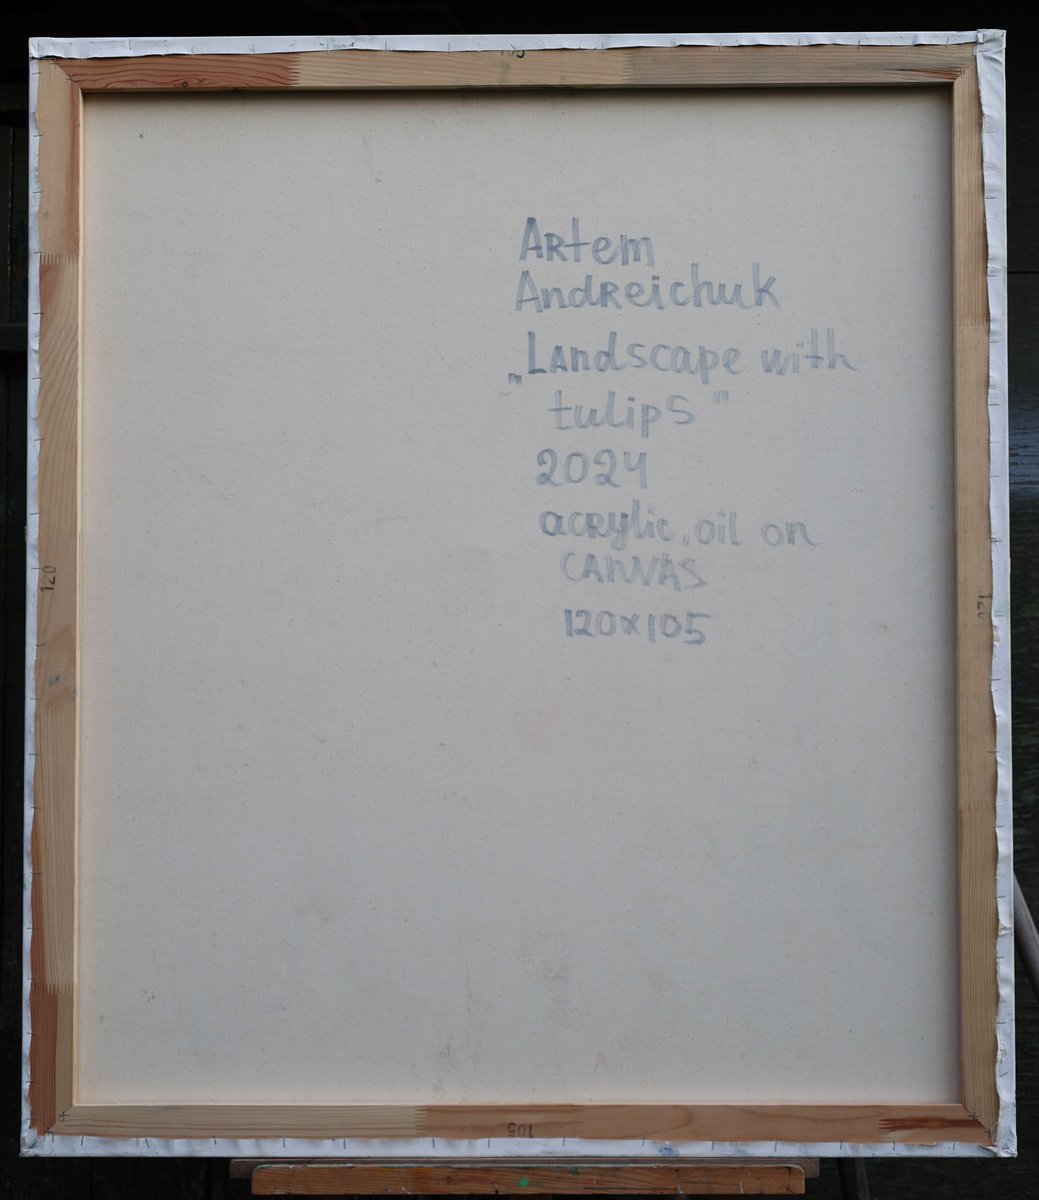 105
Artem
Andreichuk
„Landscape with
tulips"
2024
acrylic, oil on
canvas
120x105
120
120
105